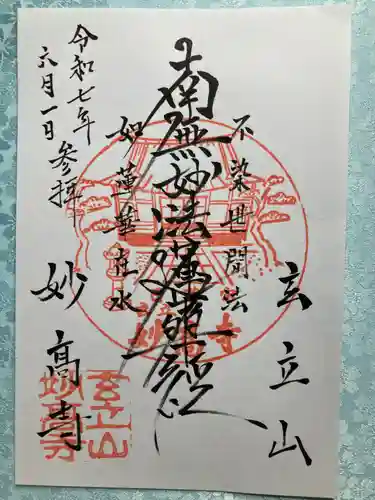 玄立山
不染世間法
南無妙法蓮華経
如蓮華在水
令和七年
六月一日
参拝
妙高寺
玄立山
妙高寺